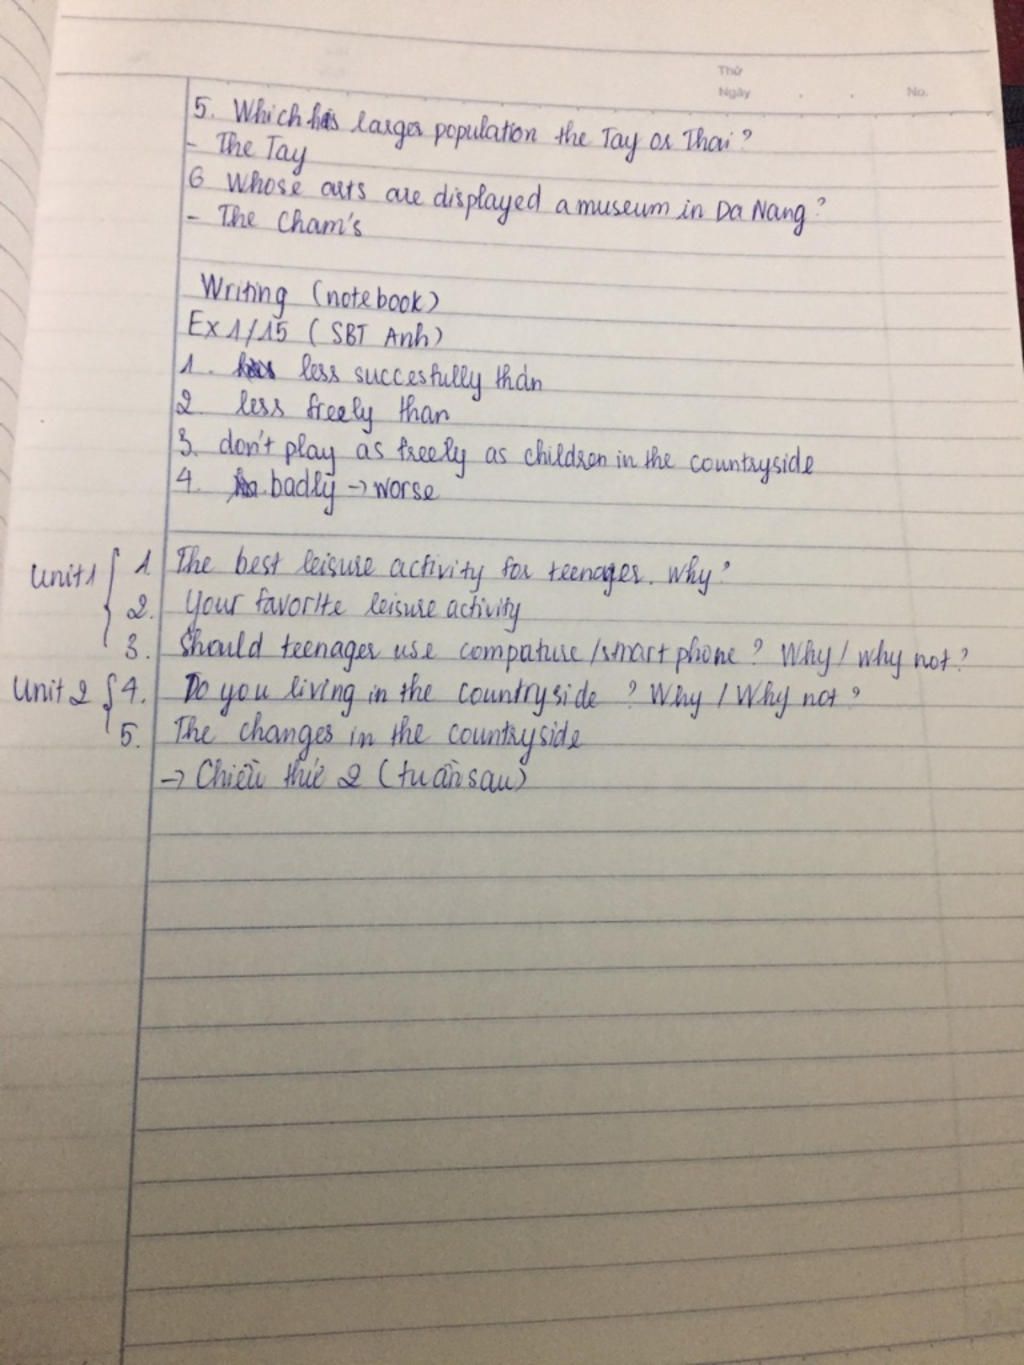 Thứ
Ngày No.
5. Which has larger population the Tay or Thai?
- The Tay
6 Whose arts are displayed a museum in Da Nang?
- The Cham's
Writing (notebook)
Ex 1/15 ( SBT Anh)
1. less succesfully than
2. less freely than
3. don't play as freely as children in the countryside
4. badly → worse
Unit 1 { 1. The best leisure activity for teenager. Why?
2. Your favorite leisure activity
3. Should teenager use compature / smart phone? Why / why not?
Unit 2 { 4. Do you living in the countryside ? Why / Why not?
5. The changes in the countryside
→ Chiều thứ 2 (tuần sau)